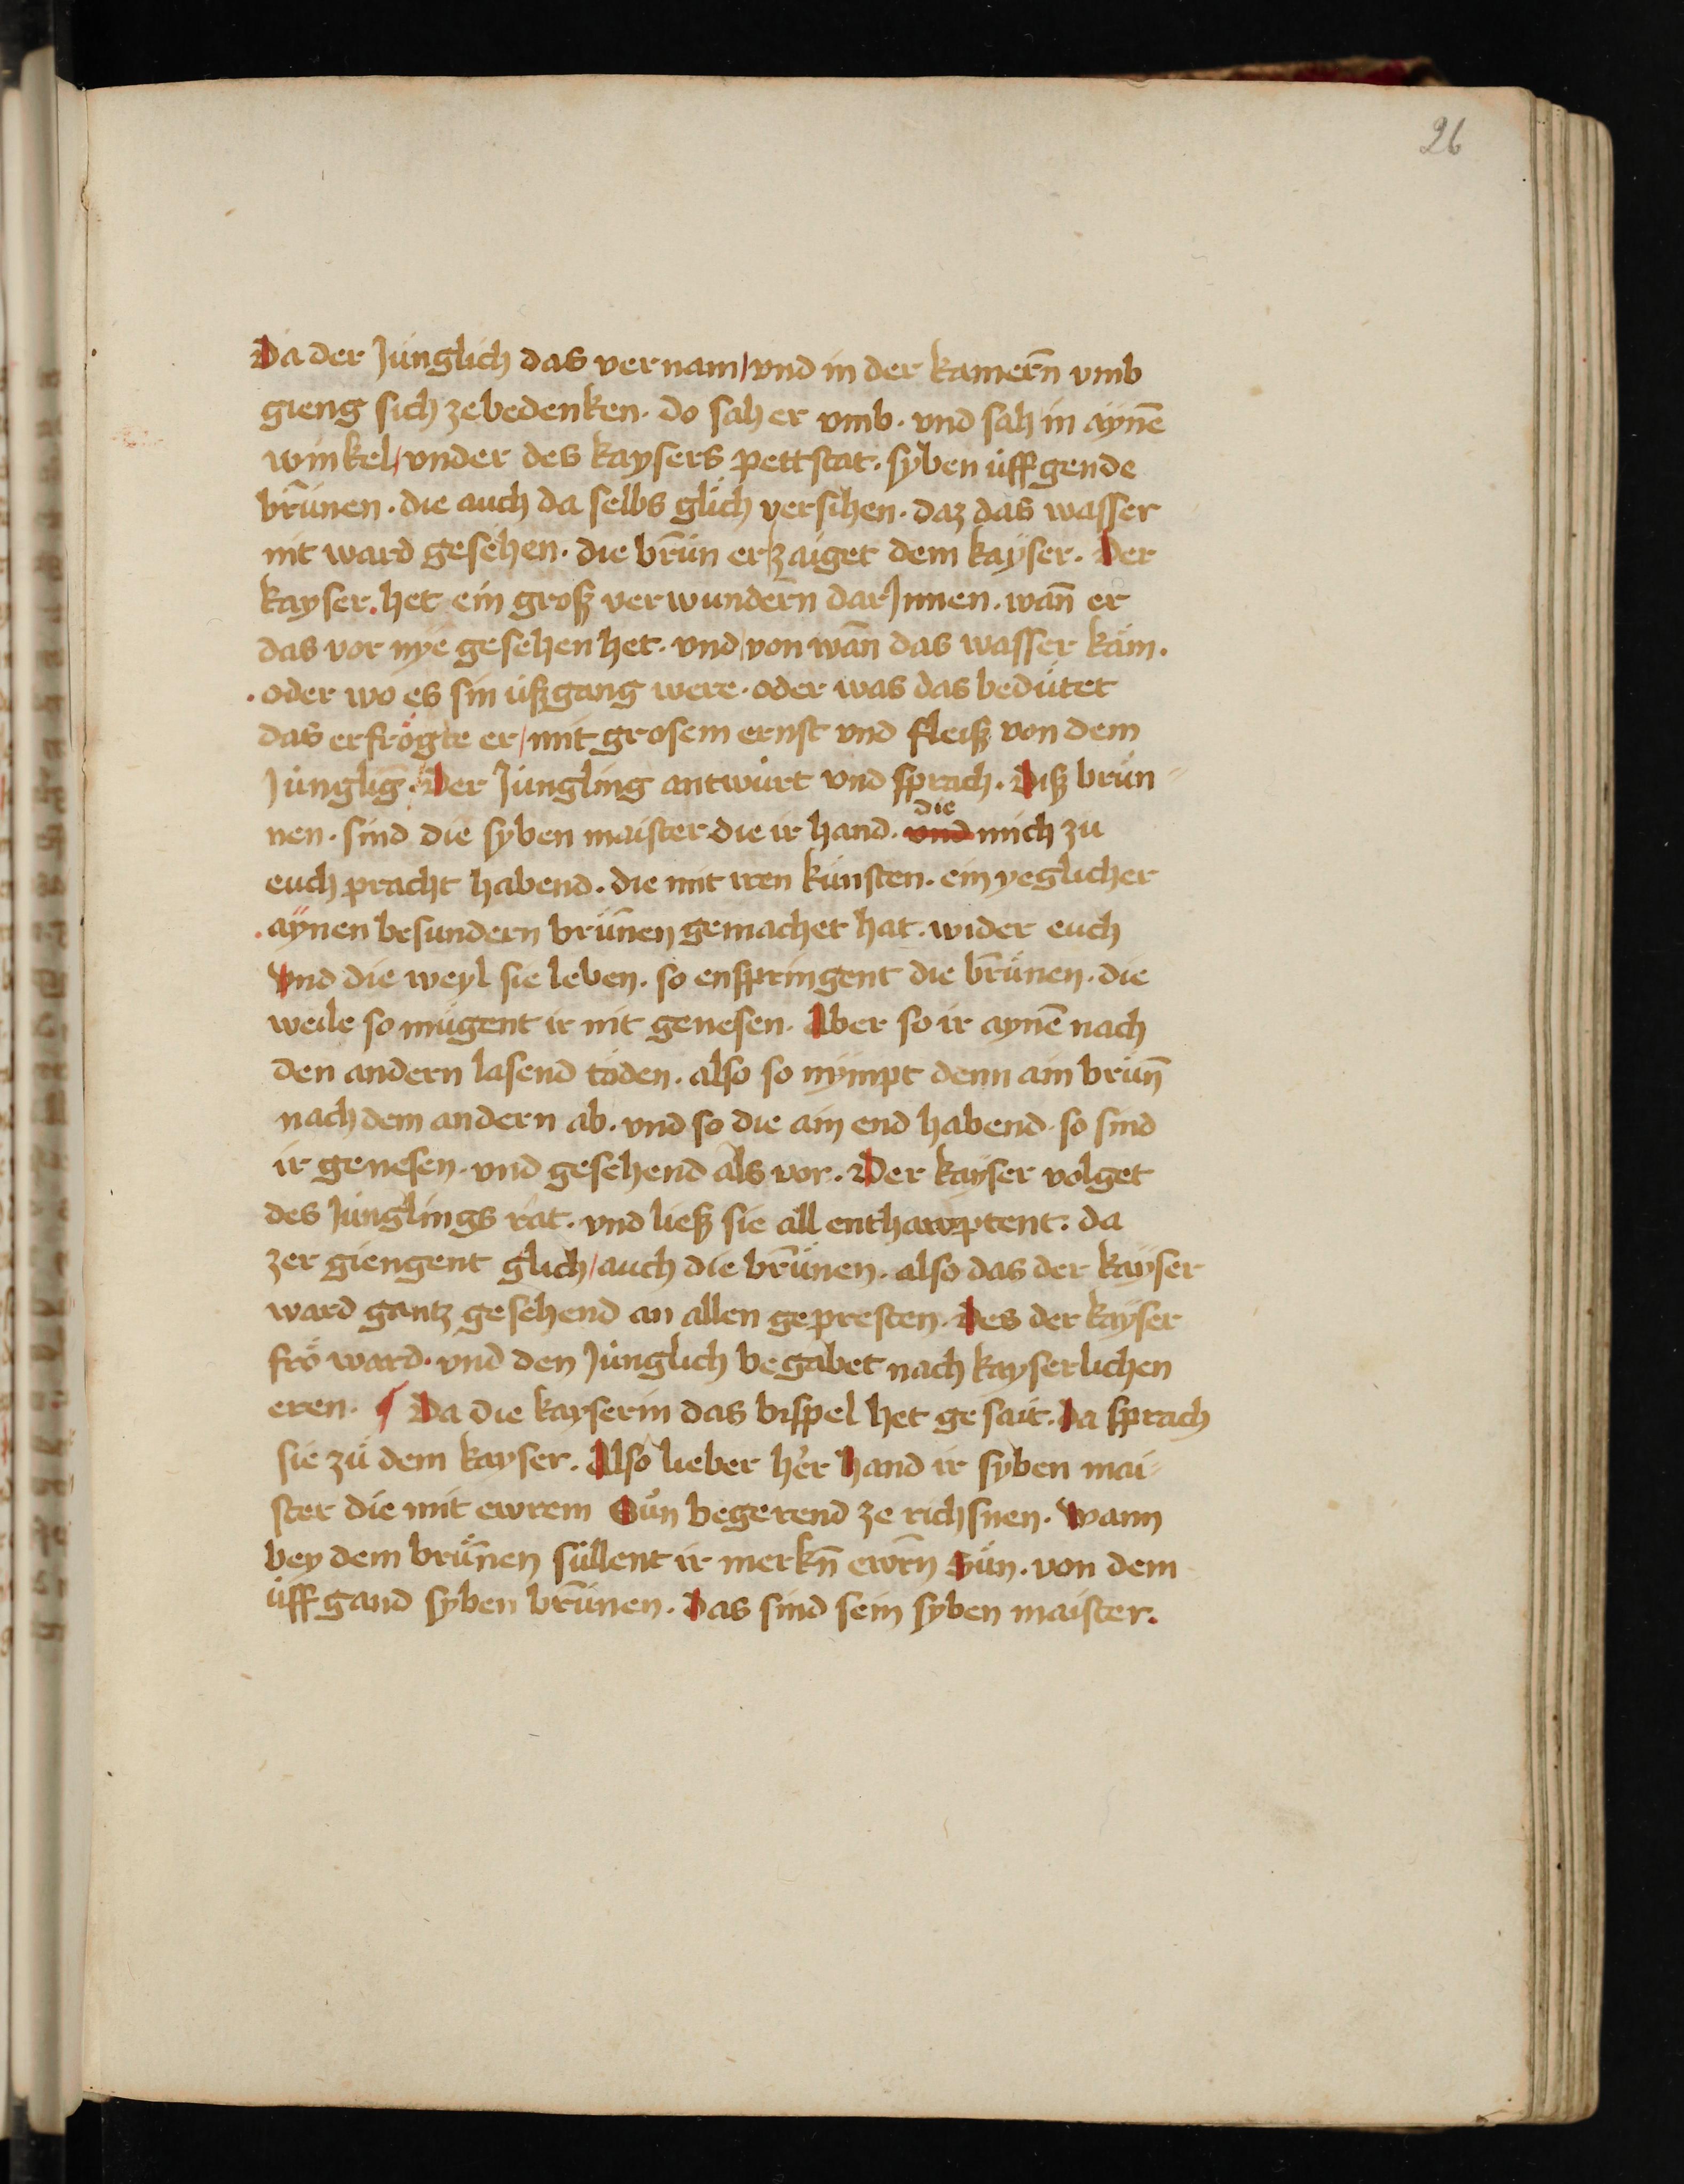 26
Da der Jünglich das vernam / vnd in der kamern̄ vmb
gieng sich zebedenken · do sah er vmb · vnd sah in aynē
winkel / vnder des kaysers pettstat · syben üffgende
brūnen · die auch da selbs glich versihen · daz das wasser
nit ward gesehen · die brūn erzaiget dem kayser · Der
kayser · het ein groß verwundern̄ darJnnen · wan̄ er
das vor nye gesehen het · vnd von wan̄ das wasser käm ·
· oder wo es sin ußgang were · oder was das bedütet
das erfrögte er / mit grosem ernst vnd fleiß von dem
Jüngliḡ · Der Jüngling antwürt vnd sprach · Diß brün-
nen · sind die syben maister die ir hand · die
vnd mich zu
euch pracht habend · die mit iren künsten · ein yeglicher
· aynen besundern brūnen gemachet hat · wider euch
Vnd die weyl sie leben · so enspringent die brūnen · die
weile so mügent ir nit genesen · Aber so ir aynē nach
den andern lasend töden · also so nympt denn ain brūn̄
nach dem andern ab · vnd so die ain end habend · so sind
ir genesen · vnd gesehend als vor · Der kayser volget
des Jünglings rat · vnd ließ sie all enthawptent · da
zer giengent glich / auch die brūnen · also das der kayser
ward gantz gesehend an allen gepresten · Des der kayser
frö ward · vnd den Jünglich begabet nach kayserlichen
eren · ¶ Da die kayserin das bispel het gesait · Da sprach
sie zü dem kayser · Also lieber her hand ir syben mai-
ster die mit ewrem Sun begerend ze richsnen · Wann
bey dem brūnen süllent ir merkn̄ ewrn̄ Sün · von dem
üffgand syben brūnen · Das sind sein syben maister ·